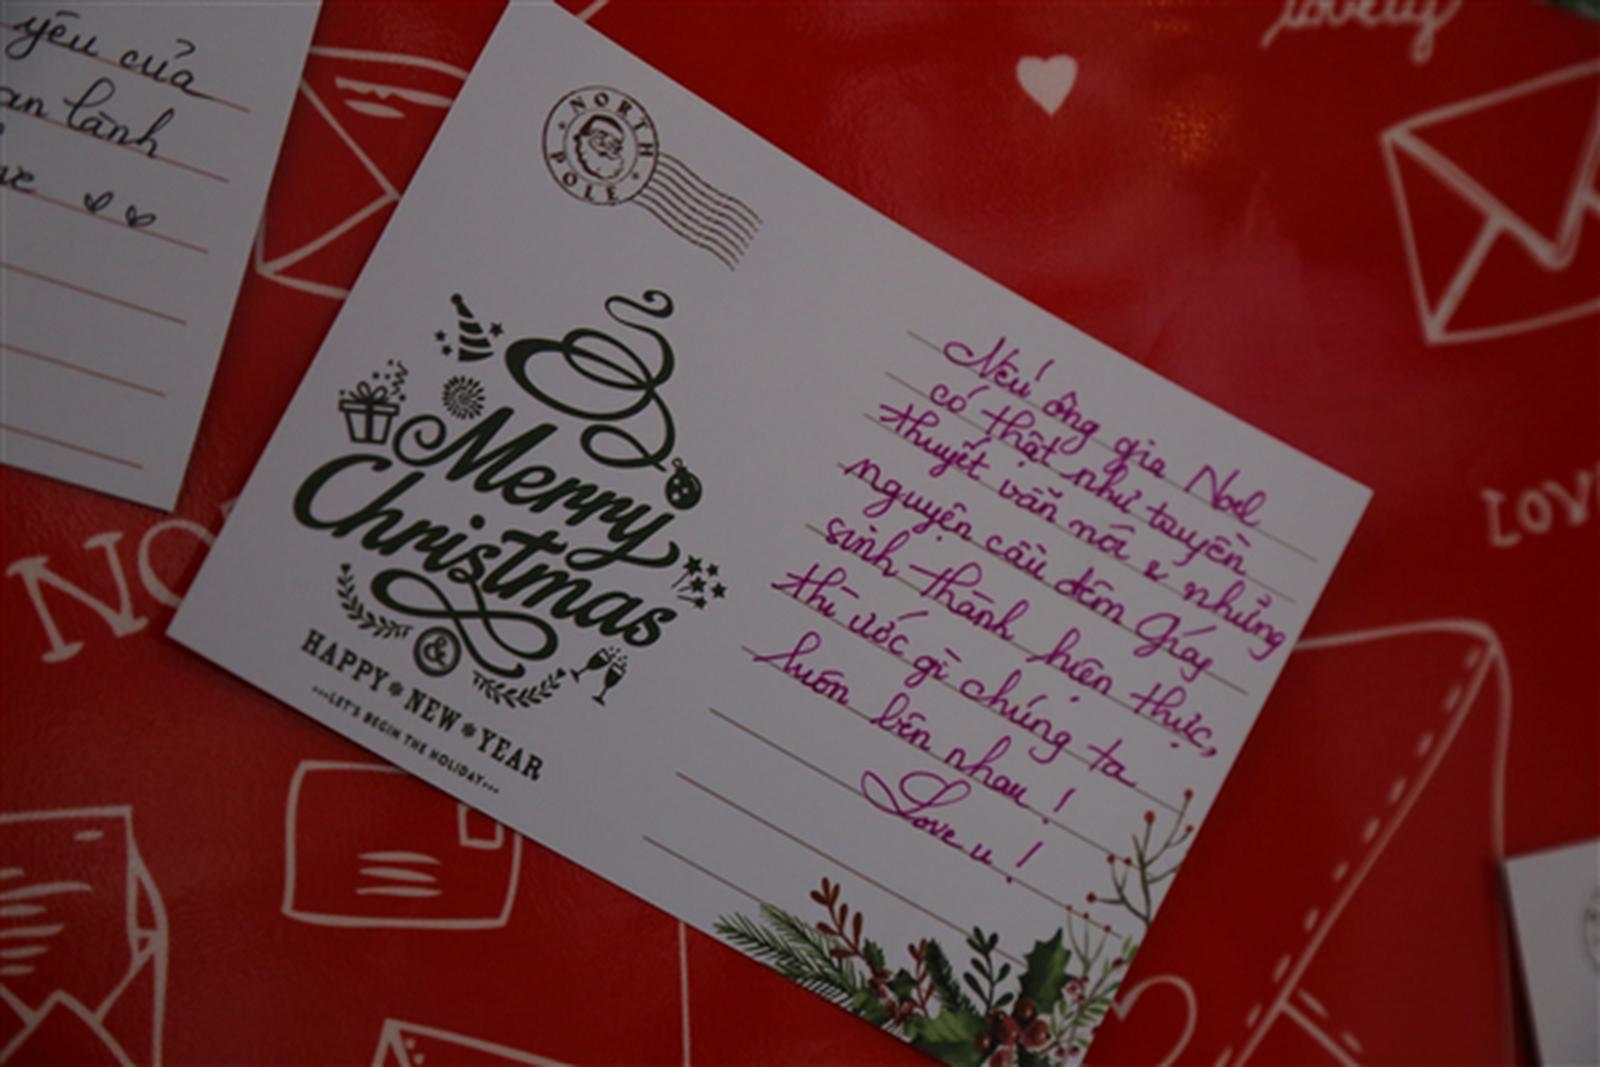 yêu của
an lành
lovely
NORTH POLE
Merry
Christmas
&
HAPPY NEW YEAR
...LET'S BEGIN THE HOLIDAY...
Nếu ông già Noel
có thật như truyền
thuyết vẫn nói & những
nguyện cầu đêm Giáng
sinh thành hiện thực,
thì ước gì chúng ta
luôn bên nhau !
Love u !
NO
LOV